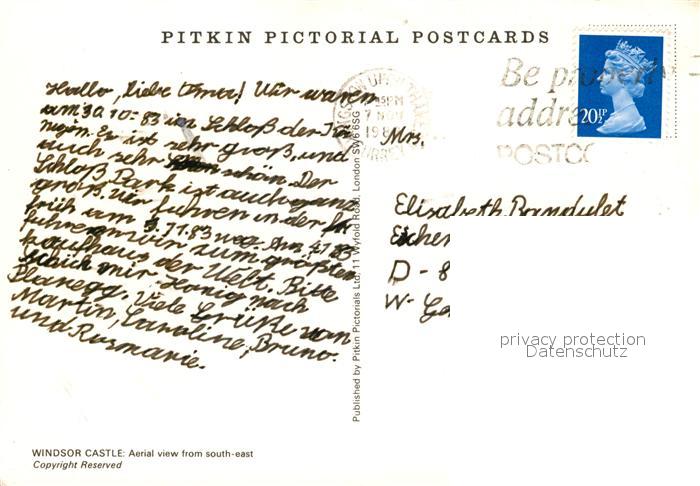 PITKIN PICTORIAL POSTCARDS
Hallo, liebe Oma! Wir waren
am 30.10.83 im Schloß der Kö
nigin. Er ist sehr groß, und
auch sehr schön. Der
Schloß Park ist auch ganz
groß. Wir fuhren in der
früh am 3.11.83 weg. Am 4.11.83
fuhren wir zum größten
Kaufhaus der Welt. Bitte
schick mir Honig nach
Planegg. Viele Grüße von
Martin, Caroline, Bruno.
und Rosmarie.
Be properly
addre
POSTCO
20½P
7 NOV
198
SURREY
Mrs.
Elisabeth Bandulet
Eichen
D - 8
W- Ga
privacy protection
Datenschutz
Published by Pitkin Pictorials Ltd, 11 Wyfold Road, London SW6 6SG
WINDSOR CASTLE: Aerial view from south-east
Copyright Reserved